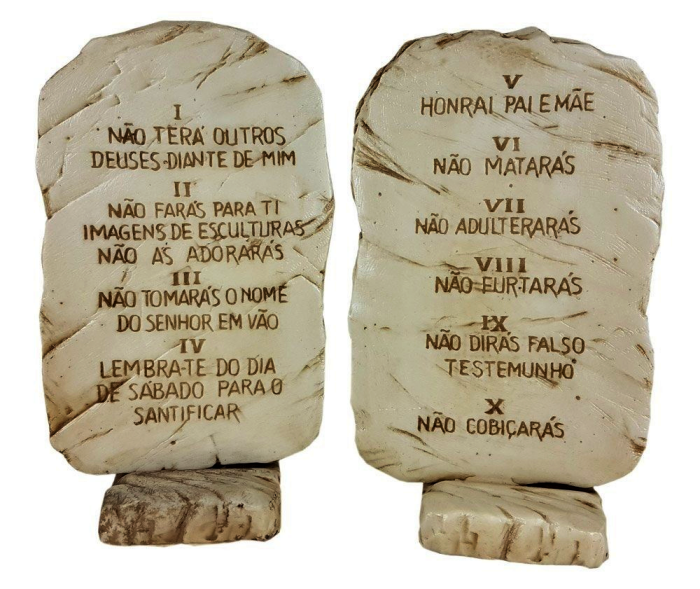 I
NÃO TERÁ OUTROS
DEUSES DIANTE DE MIM
II
NÃO FARÁS PARA TI
IMAGENS DE ESCULTURAS
NÃO ÁS ADORARÁS
III
NÃO TOMARÁS O NOME
DO SENHOR EM VÃO
IV
LEMBRA-TE DO DIA
DE SÁBADO PARA O
SANTIFICAR
V
HONRAI PAI E MÃE
VI
NÃO MATARÁS
VII
NÃO ADULTERARÁS
VIII
NÃO FURTARÁS
IX
NÃO DIRÁS FALSO
TESTEMUNHO
X
NÃO COBIÇARÁS